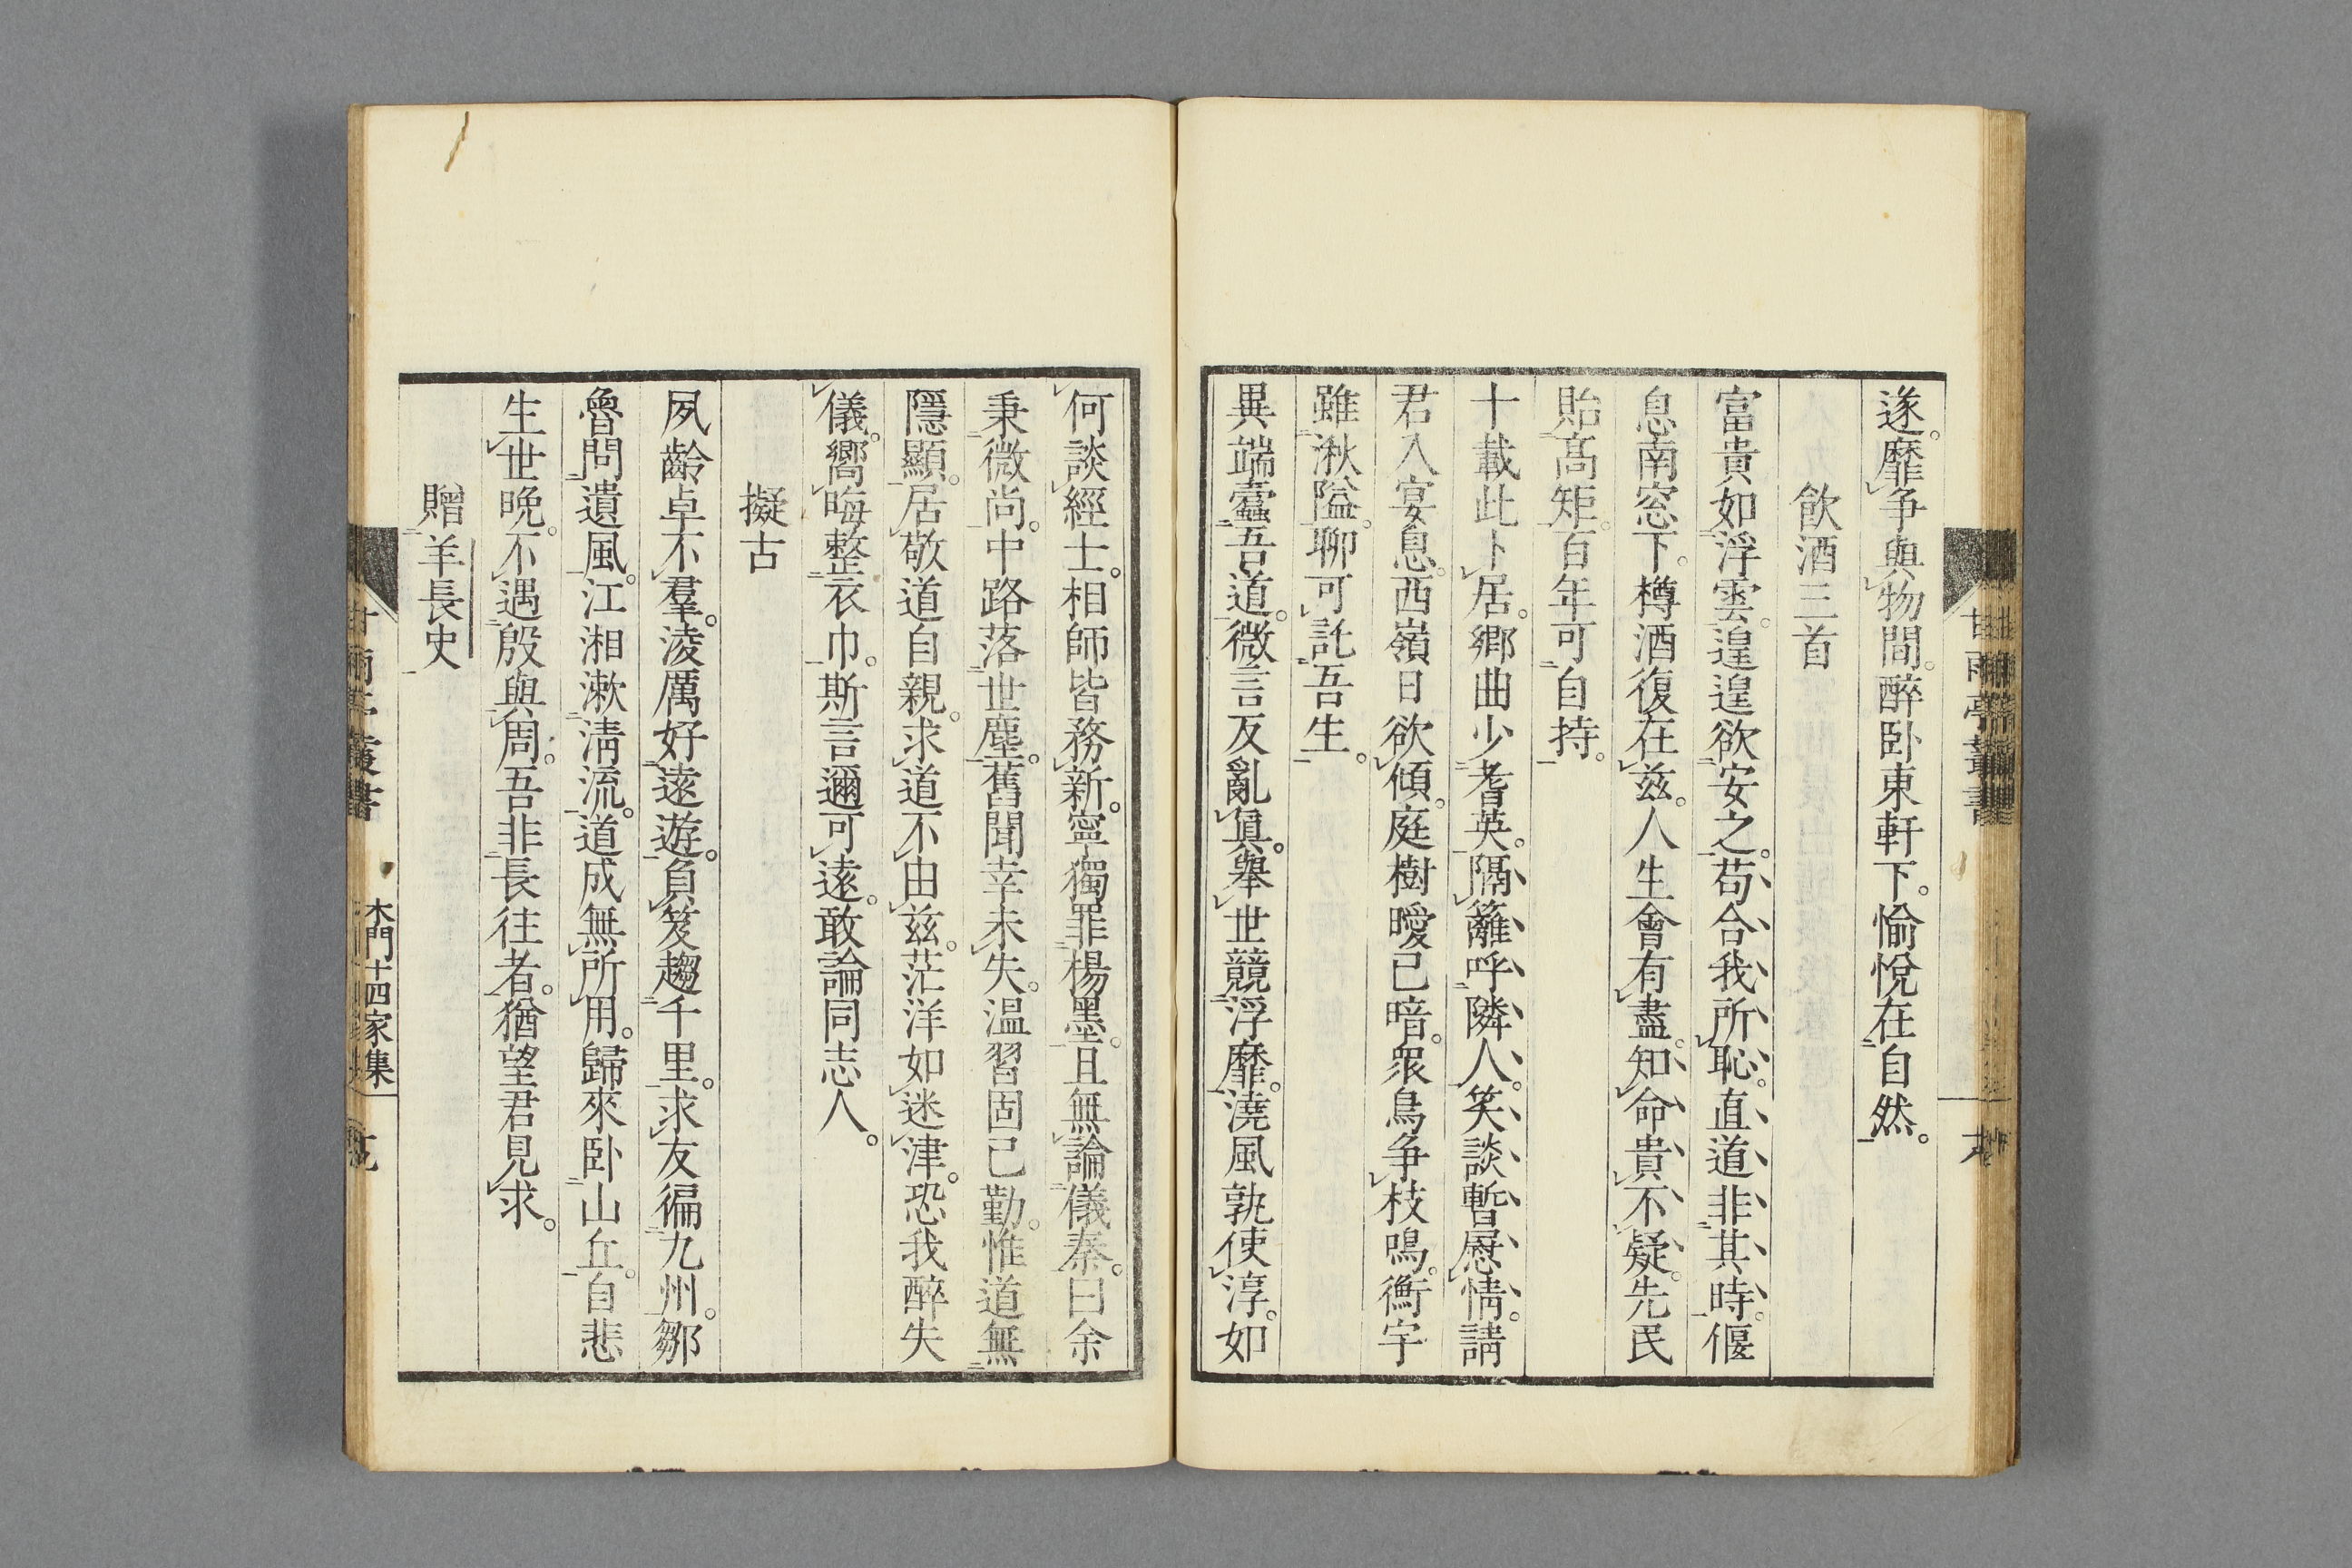 遂。靡争與物間。醉卧東軒下。愉悅在自然。
飲酒三首
富貴如浮雲。遑遑欲安之。苟合我所恥。直道非其時。偃
息南窓下。樽酒復在兹。人生會有盡。知命貴不疑。先民
貽髙矩。百年可自持。
十載此卜居。鄉曲少耆英。隔籬呼隣人。笑談暫慰情。請
君入宴息。西嶺日欲傾。庭樹曖已暗。眾鳥争枝鳴。衡宇
雖湫隘。聊可託吾生。
異端蠹吾道。微言反亂眞。舉世競浮靡。澆風孰使淳。如
何談經士。相師皆務新。寧獨罪楊墨。且無論儀秦。曰余
秉微尚。中路落世塵。舊聞幸未失。温習固已勤。惟道無
隱顯。居敬道自親。求道不由兹。茫洋如迷津。恐我醉失
儀。嚮晦整衣巾。斯言邇可遠。敢論同志人。
擬古
夙齡卓不羣。淩厲好遠遊。負笈趨千里。求友徧九州。鄒
魯問遺風。江湘漱淸流。道成無所用。歸來卧山丘。自悲
生世晚。不遇殷與周。吾非長往者。猶望君見求。
贈羊長史
甘雨亭叢書
木門十四家集